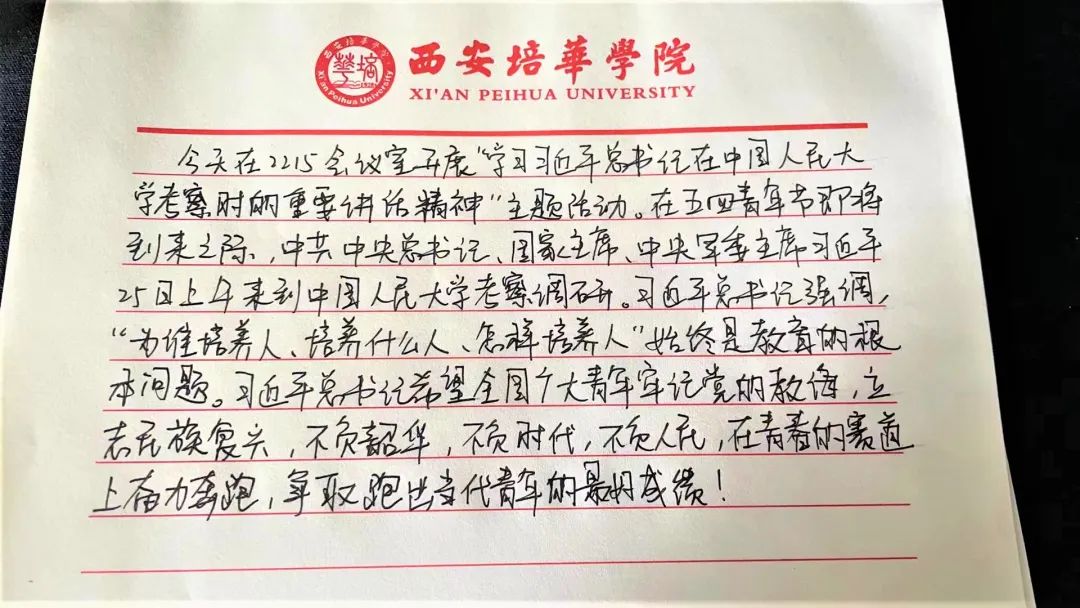 西安培華學院
XI'AN PEIHUA UNIVERSITY
西安培華学院
Xi'an Peihua University
1928
今天在2215会议室开展“学习习近平总书记在中国人民大
学考察时的重要讲话精神”主题活动。在五四青年节即将
到来之际，中共中央总书记、国家主席、中央军委主席习近平
25日上午来到中国人民大学考察调研。习近平总书记强调，
“为谁培养人、培养什么人、怎样培养人”始终是教育的根
本问题。习近平总书记希望全国广大青年牢记党的教诲，立
志民族复兴，不负韶华，不负时代，不负人民，在青春的赛道
上奋力奔跑，争取跑出当代青年的最好成绩！